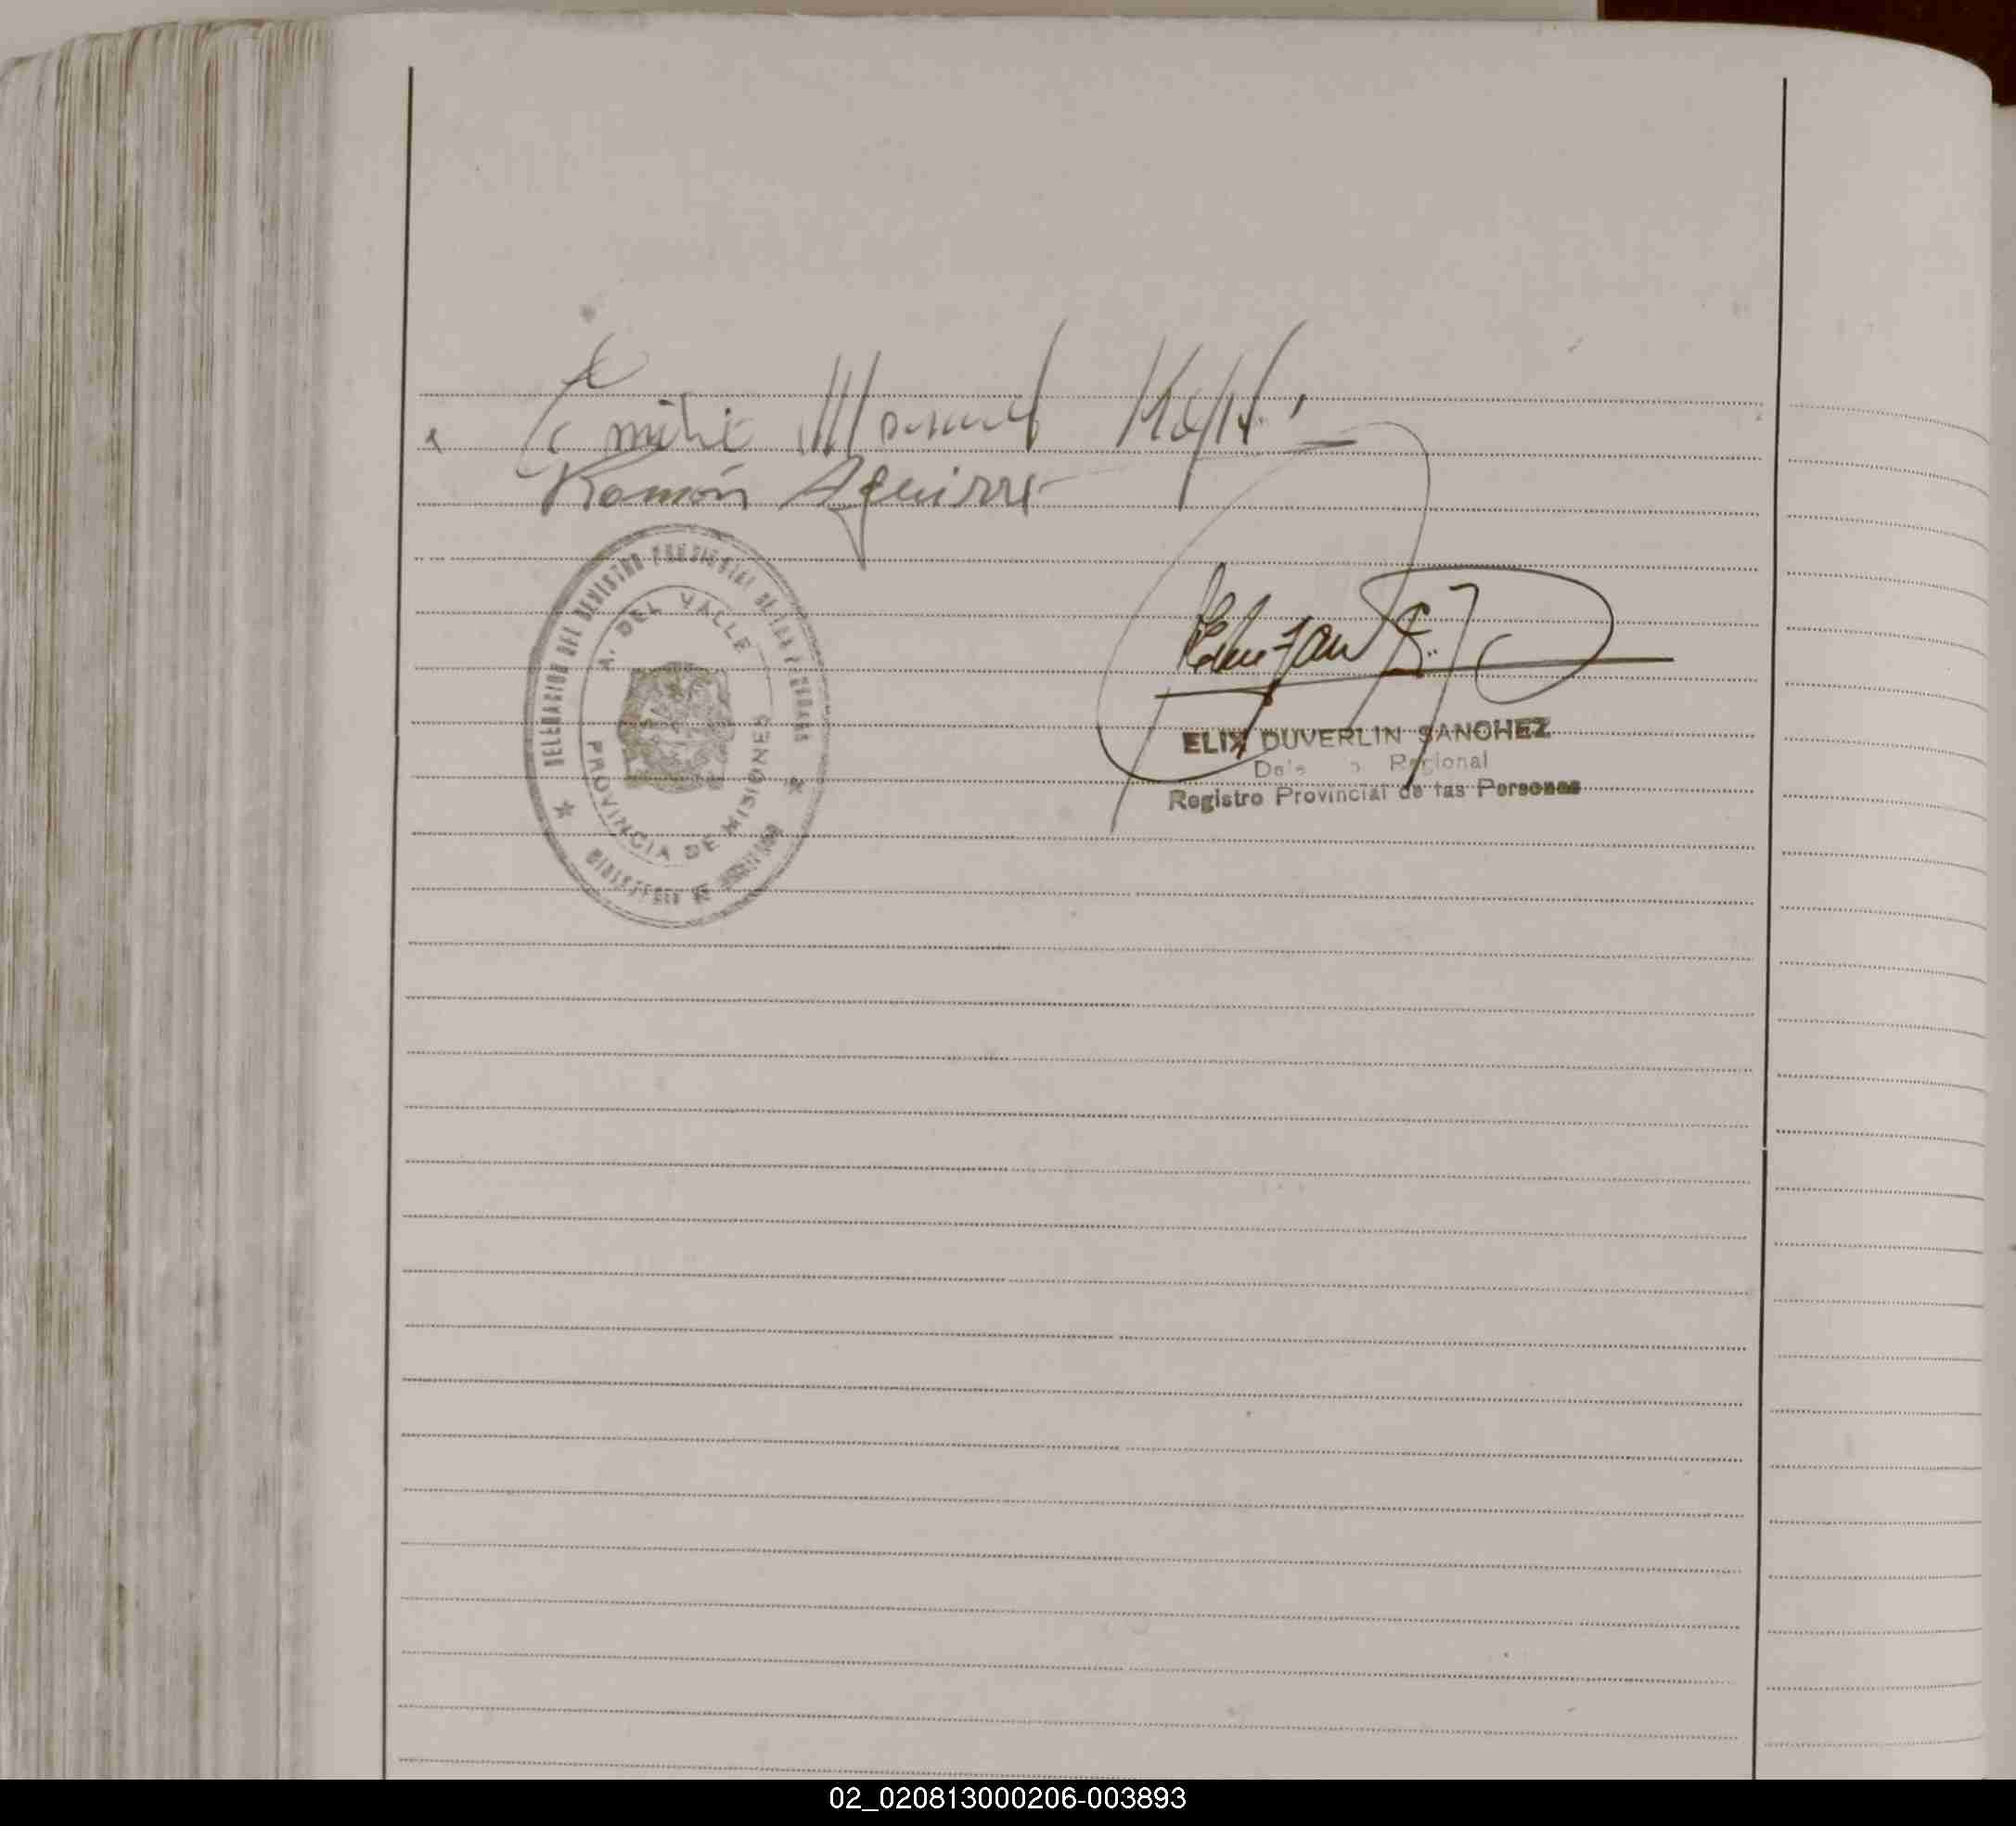 Emilio Manuel
Ramón Aguirre
DELEGACION DEL REGISTRO PROVINCIAL DE LAS PERSONAS
A. DEL VALLE
PROVINCIA DE MISIONES
MINISTERIO DE
ELIX DUVERLIN SANCHEZ
Regional
Registro Provincial de las Personas
02_020813000206-003893